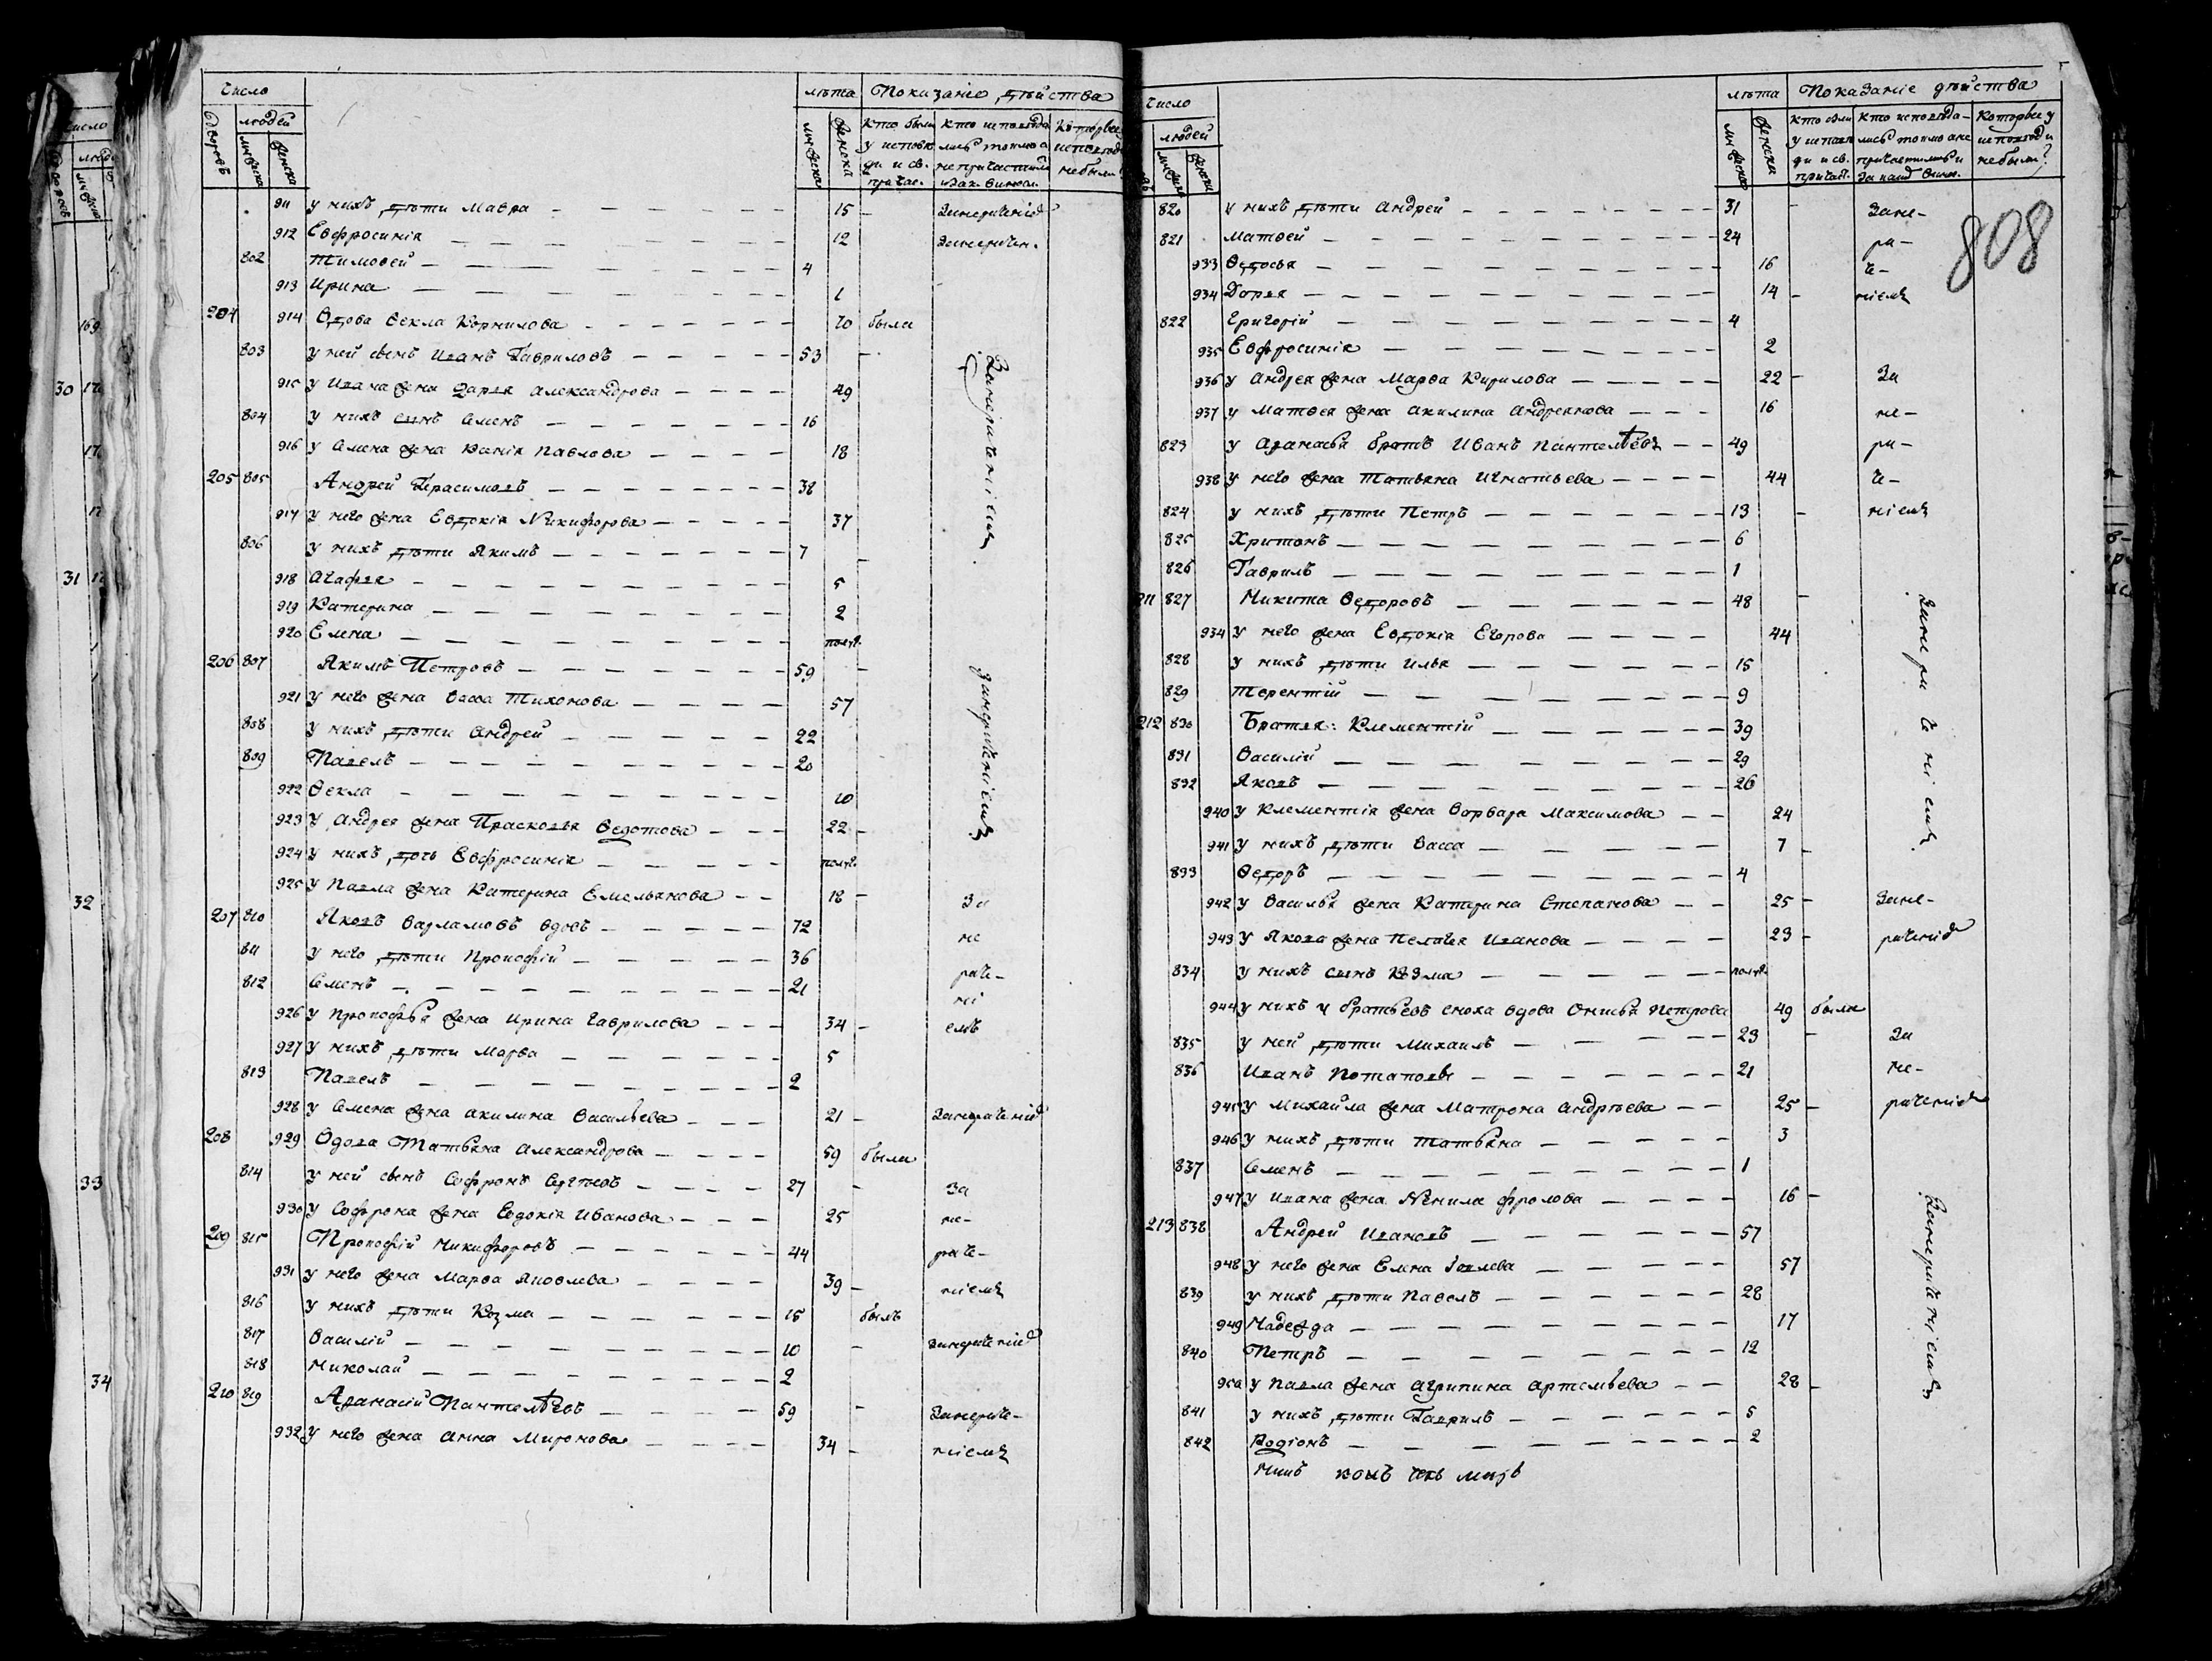 Число
лѣта Показаніе дѣйства
Дворовъ
людей
мужеска
женска
мужеска
женска
кто были у исповѣди и св. причас.
кто исповѣда лись токмо а не причастил
Которые исповѣд не были
911 у нихъ дѣти Мавра 15 - Занераченіе
912 Евфросинія 12 Занерачен.
802 Тимовей 4
913 Ирина 1
204 914 Вдова Ѳекла Корнилова 70 была
803 у ней сынъ Иванъ Гавриловъ 53 -
915 у Ивана жена Дарья Александрова 49
804 у нихъ сынъ Семенъ 16
916 у Семена жена Ксанія Павлова 18
Занераченіемъ
205 805 Андрей Герасимовъ 38
917 у него жена Евдокія Никифорова 37
806 у нихъ дѣти Якимъ 7 -
918 Агафья 5
919 Катерина 2
920 Елена полг.
206 807 Якимъ Петровъ 59 -
921 у него жена Васса Тихонова 57
808 у нихъ дѣти Андрей 22
809 Павелъ 20
922 Ѳекла 10
923 у Андрея жена Прасковья Ѳедотова 22 -
924 у нихъ дочь Евфросинія полг.
занераченіемъ
925 у Павла жена Катерина Емельянова 18 - За
207 810 Яковъ Варламовъ вдовъ 72 не
811 у него дѣти Прокофій 36 раче-
812 Семенъ 21 ні
926 у Прокофья жена Ирина Гаврилова 34 - емъ
927 у нихъ дѣти Марѳа 5
813 Павелъ 2
928 у Семена жена Акилина Васильева 21 - Занераченіе
208 929 Вдова Татьяна Александрова 59 была
814 у ней сынъ Софронъ Сергѣевъ 27 - За
930 у Софрона жена Евдокія Иванова 25 не-
209 815 Прокофій Никифоровъ 44 раче-
931 у него жена Марѳа Яковлева 39 - ніемъ
816 у нихъ дѣти Козма 15 былъ
817 Василій 10 - Занераченіе
818 Николай 2
210 819 Аѳанасій Пантелѣевъ 59 - Занераче-
932 у него жена Анна Миронова 34 - ніемъ
Число
лѣта Показаніе дѣйства
людей
мужеска
женска
кто были у исповѣди и св. причаст.
кто исповѣда- лись токмо а не причастились и
Которые у исповѣди не были?
808
820 у нихъ дѣти Андрей 31 - Зане-
821 Матвей 24 ра-
933 Ѳедосья 16 че-
934 Дарья 14 - ніемъ
822 Григорій 4
935 Евфросинія 2
936 у Андрея жена Марѳа Кирилова 22 - За
937 у Матвея жена Акилина Андреянова 16 не-
823 у Аѳанасья братъ Иванъ Пантелѣевъ 49 ра-
938 у него жена Татьяна Игнатьева 44 че-
824 у нихъ дѣти Петръ 13 - ніемъ
825 Хритонъ 6
826 Гаврилъ 1
211 827 Никита Ѳедоровъ 48 -
934 у него жена Евдокія Егорова 44
828 у нихъ дѣти Илья 15
829 Терентій 9
212 830 Братья: Клементій 39
831 Василій 29
832 Яковъ 26
Занераченіемъ
940 у Клементія жена Варвара Максимова 24
941 у нихъ дѣти Васса 7 -
833 Ѳедоръ 4
942 у Василья жена Катерина Степанова 25 - Зане-
943 у Якова жена Пелагея Иванова 23 - раченіе
834 у нихъ сынъ Козма полг.
944 у нихъ у братьевъ сноха вдова Онисья Петрова 49 была
835 у ней дѣти Михаилъ 23 - За
836 Иванъ Потаповы 21 не-
945 у Михайла жена Матрона Андрѣева 25 - раченіе
946 у нихъ дѣти Татьяна 3
837 Семенъ 1
947 у Ивана жена Ненила Фролова 16 -
213 838 Андрей Ивановъ 57
948 у него жена Елена Іевлева 57
839 у нихъ дѣти Павелъ 28
949 Надежда 17
840 Петръ 12
950 у Павла жена Агрипина Артемьева 28 -
Занераченіемъ
841 у нихъ дѣти Гаврилъ 5
842 Родіонъ 2